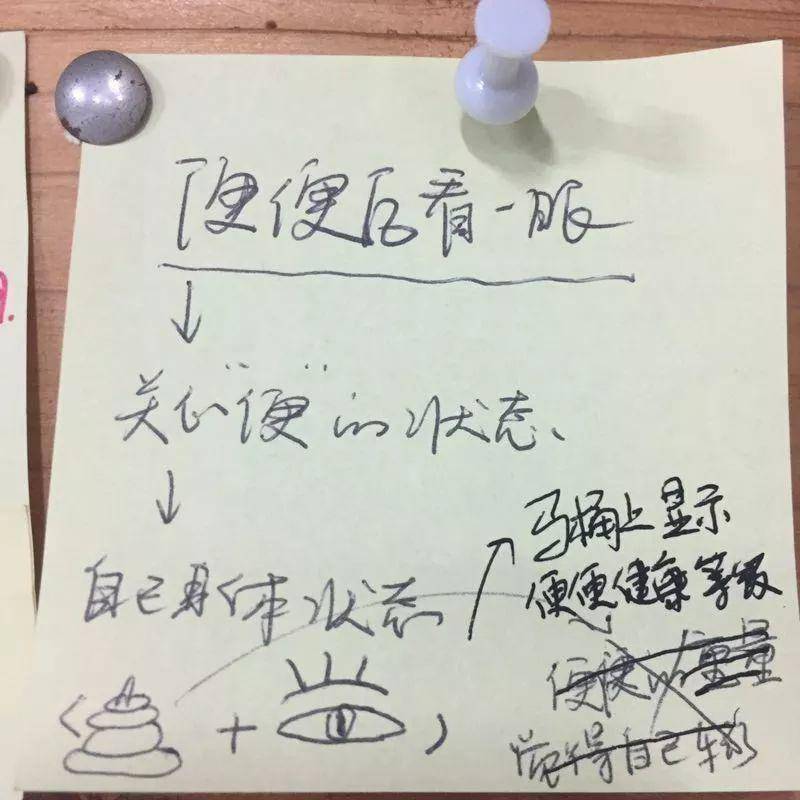 便便后看一眼
↓
关心"便"的状态、
↓
自己身体状态
马桶上显示
便便健康等级
便便的重量
觉得自己轻
( + )